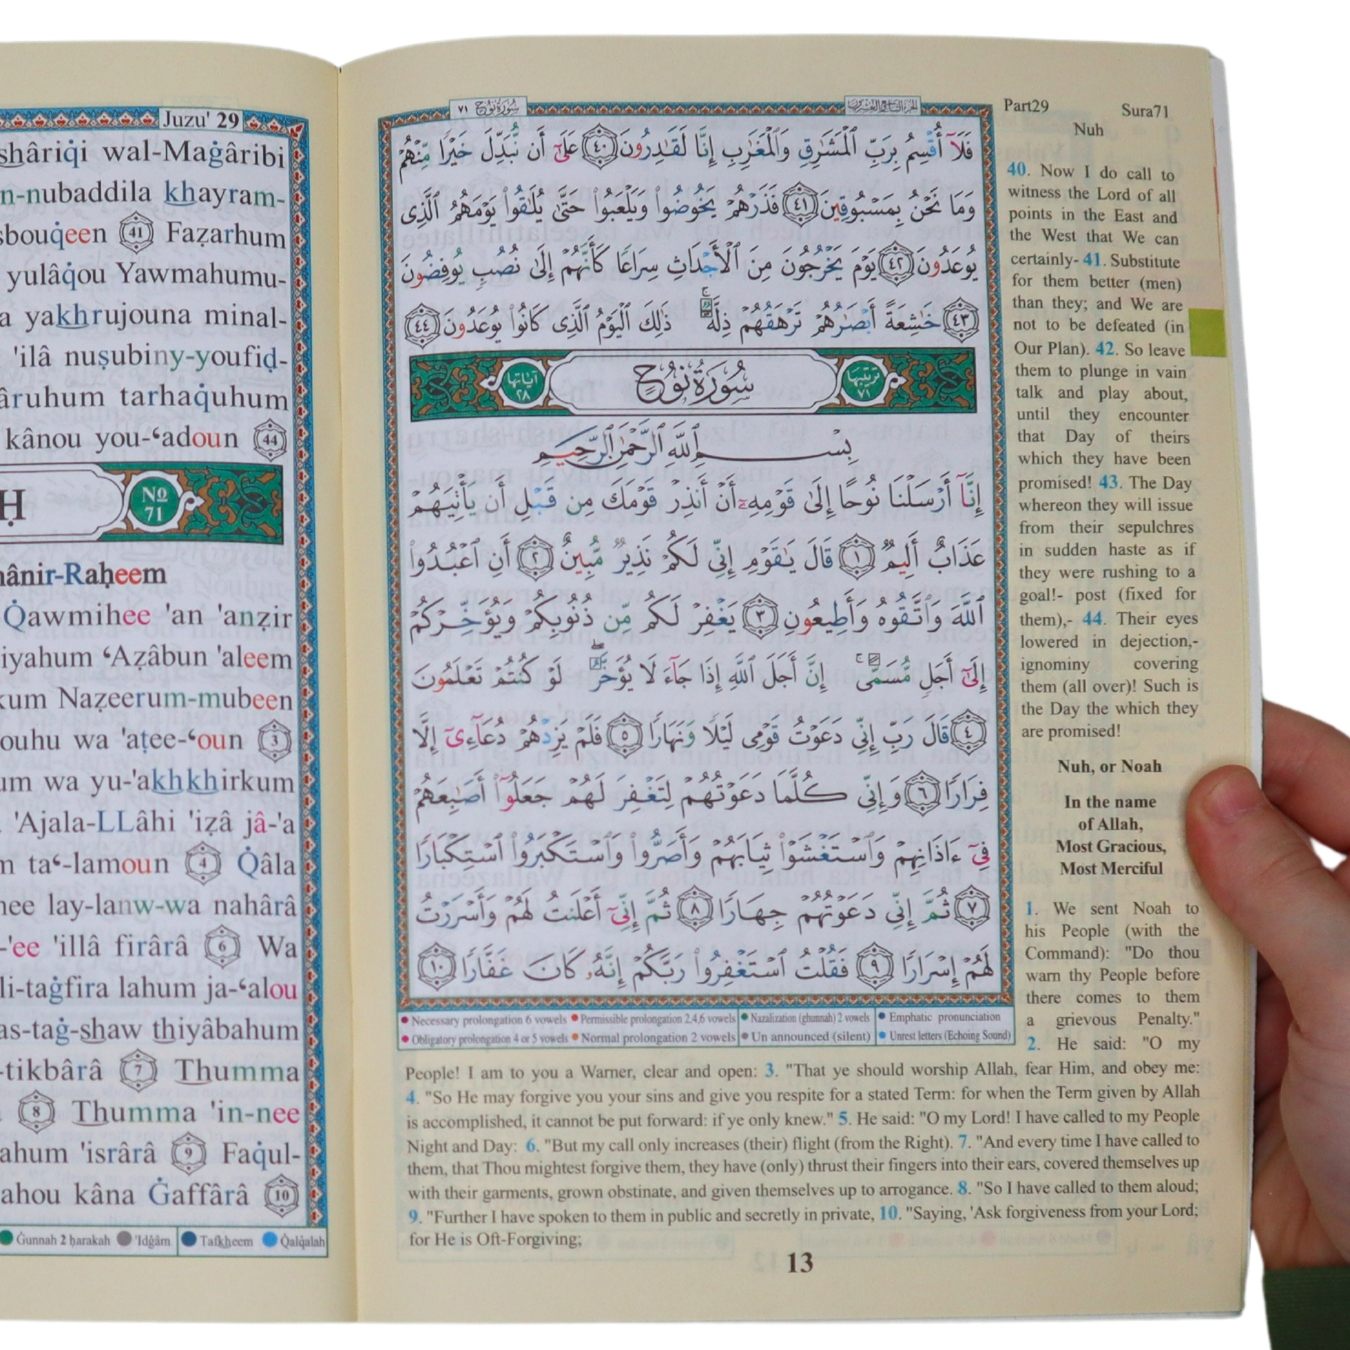 Juzu' 29
shâriqi wal-Maġâribi
n-nubaddila khayram-
sbouqeen 41 Fazarhum
yulâqou Yawmahumu-
a yakhrujouna minal-
'ilâ nuṣubiny-youfiḍ-
âruhum tarhaquhum
kânou you-‘adoun 44
Ḥ
No 71
mânir-Raḥeem
Qawmihee 'an 'anẓir
iyahum ‘Aẓâbun 'aleem
kum Naẓeerum-mubeen
ouhu wa 'aṭee-‘oun 3
um wa yu-'akhkhirkum
'Ajala-LLâhi 'iẓâ jâ-'a
m ta‘-lamoun 4 Qâla
nee lay-lanw-wa nahârâ
-'ee 'illâ firârâ 6 Wa
li-taġfira lahum ja-‘alou
as-taġ-shaw thiyâbahum
-tikbârâ 7 Thumma
8 Thumma 'in-nee
ahum 'isrârâ 9 Faqul-
ahou kâna Ġaffârâ 10
Ġunnah 2 ḥarakah 'Idġâm Tafkheem Qalqalah
سورة نوح ٧١
الجزء التاسع والعشرون
فَلَآ أُقْسِمُ بِرَبِّ ٱلْمَشَـٰرِقِ وَٱلْمَغَـٰرِبِ إِنَّا لَقَـٰدِرُونَ ٤٠ عَلَىٰٓ أَن نُّبَدِّلَ خَيْرًا مِّنْهُمْ
وَمَا نَحْنُ بِمَسْبُوقِينَ ٤١ فَذَرْهُمْ يَخُوضُوا۟ وَيَلْعَبُوا۟ حَتَّىٰ يُلَـٰقُوا۟ يَوْمَهُمُ ٱلَّذِى
يُوعَدُونَ ٤٢ يَوْمَ يَخْرُجُونَ مِنَ ٱلْأَجْدَاثِ سِرَاعًا كَأَنَّهُمْ إِلَىٰ نُصُبٍ يُوفِضُونَ
٤٣ خَـٰشِعَةً أَبْصَـٰرُهُمْ تَرْهَقُهُمْ ذِلَّةٌ ذَٰلِكَ ٱلْيَوْمُ ٱلَّذِى كَانُوا۟ يُوعَدُونَ ٤٤
ترتيبها ٧١ سُورَةُ نُوحٍ آياتها ٢٨
بِسْمِ ٱللَّهِ ٱلرَّحْمَـٰنِ ٱلرَّحِيمِ
إِنَّآ أَرْسَلْنَا نُوحًا إِلَىٰ قَوْمِهِۦٓ أَنْ أَنذِرْ قَوْمَكَ مِن قَبْلِ أَن يَأْتِيَهُمْ
عَذَابٌ أَلِيمٌ ١ قَالَ يَـٰقَوْمِ إِنِّى لَكُمْ نَذِيرٌ مُّبِينٌ ٢ أَنِ ٱعْبُدُوا۟
ٱللَّهَ وَٱتَّقُوهُ وَأَطِيعُونِ ٣ يَغْفِرْ لَكُم مِّن ذُنُوبِكُمْ وَيُؤَخِّرْكُمْ
إِلَىٰٓ أَجَلٍ مُّسَمًّى إِنَّ أَجَلَ ٱللَّهِ إِذَا جَآءَ لَا يُؤَخَّرُ لَوْ كُنتُمْ تَعْلَمُونَ
٤ قَالَ رَبِّ إِنِّى دَعَوْتُ قَوْمِى لَيْلًا وَنَهَارًا ٥ فَلَمْ يَزِدْهُمْ دُعَآءِىٓ إِلَّا
فِرَارًا ٦ وَإِنِّى كُلَّمَا دَعَوْتُهُمْ لِتَغْفِرَ لَهُمْ جَعَلُوٓا۟ أَصَـٰبِعَهُمْ
فِىٓ ءَاذَانِهِمْ وَٱسْتَغْشَوْا۟ ثِيَابَهُمْ وَأَصَرُّوا۟ وَٱسْتَكْبَرُوا۟ ٱسْتِكْبَارًا
٧ ثُمَّ إِنِّى دَعَوْتُهُمْ جِهَارًا ٨ ثُمَّ إِنِّىٓ أَعْلَنتُ لَهُمْ وَأَسْرَرْتُ
لَهُمْ إِسْرَارًا ٩ فَقُلْتُ ٱسْتَغْفِرُوا۟ رَبَّكُمْ إِنَّهُۥ كَانَ غَفَّارًا ١٠
Necessary prolongation 6 vowels Permissible prolongation 2,4,6 vowels Nazalization (ghunnah) 2 vowels Emphatic pronunciation
Obligatory prolongation 4 or 5 vowels Normal prolongation 2 vowels Un announced (silent) Unrest letters (Echoing Sound)
Part29 Sura71
Nuh
40. Now I do call to
witness the Lord of all
points in the East and
the West that We can
certainly- 41. Substitute
for them better (men)
than they; and We are
not to be defeated (in
Our Plan). 42. So leave
them to plunge in vain
talk and play about,
until they encounter
that Day of theirs
which they have been
promised! 43. The Day
whereon they will issue
from their sepulchres
in sudden haste as if
they were rushing to a
goal!- post (fixed for
them),- 44. Their eyes
lowered in dejection,-
ignominy covering
them (all over)! Such is
the Day the which they
are promised!
Nuh, or Noah
In the name
of Allah,
Most Gracious,
Most Merciful
1. We sent Noah to
his People (with the
Command): "Do thou
warn thy People before
there comes to them
a grievous Penalty."
2. He said: "O my
People! I am to you a Warner, clear and open: 3. "That ye should worship Allah, fear Him, and obey me:
4. "So He may forgive you your sins and give you respite for a stated Term: for when the Term given by Allah
is accomplished, it cannot be put forward: if ye only knew." 5. He said: "O my Lord! I have called to my People
Night and Day: 6. "But my call only increases (their) flight (from the Right). 7. "And every time I have called to
them, that Thou mightest forgive them, they have (only) thrust their fingers into their ears, covered themselves up
with their garments, grown obstinate, and given themselves up to arrogance. 8. "So I have called to them aloud;
9. "Further I have spoken to them in public and secretly in private, 10. "Saying, 'Ask forgiveness from your Lord;
for He is Oft-Forgiving;
13